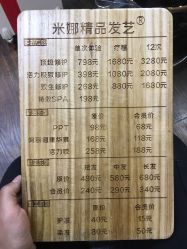 米娜精品发艺®
单次体验 疗程 12次
顶级修护 798元 1680元 3280元
活力极致修护 398元 1080元 2080元
致生修护 268元 880元 1680元
特效SPA 198元
原价 会员价
PPT 98元 68元
168元 118元
活力 258元 188元
短发 中发 长发
原价 480元 580元 680元
会员价 240元 290元 340元
原价 会员价
40元 15元
80元 50元